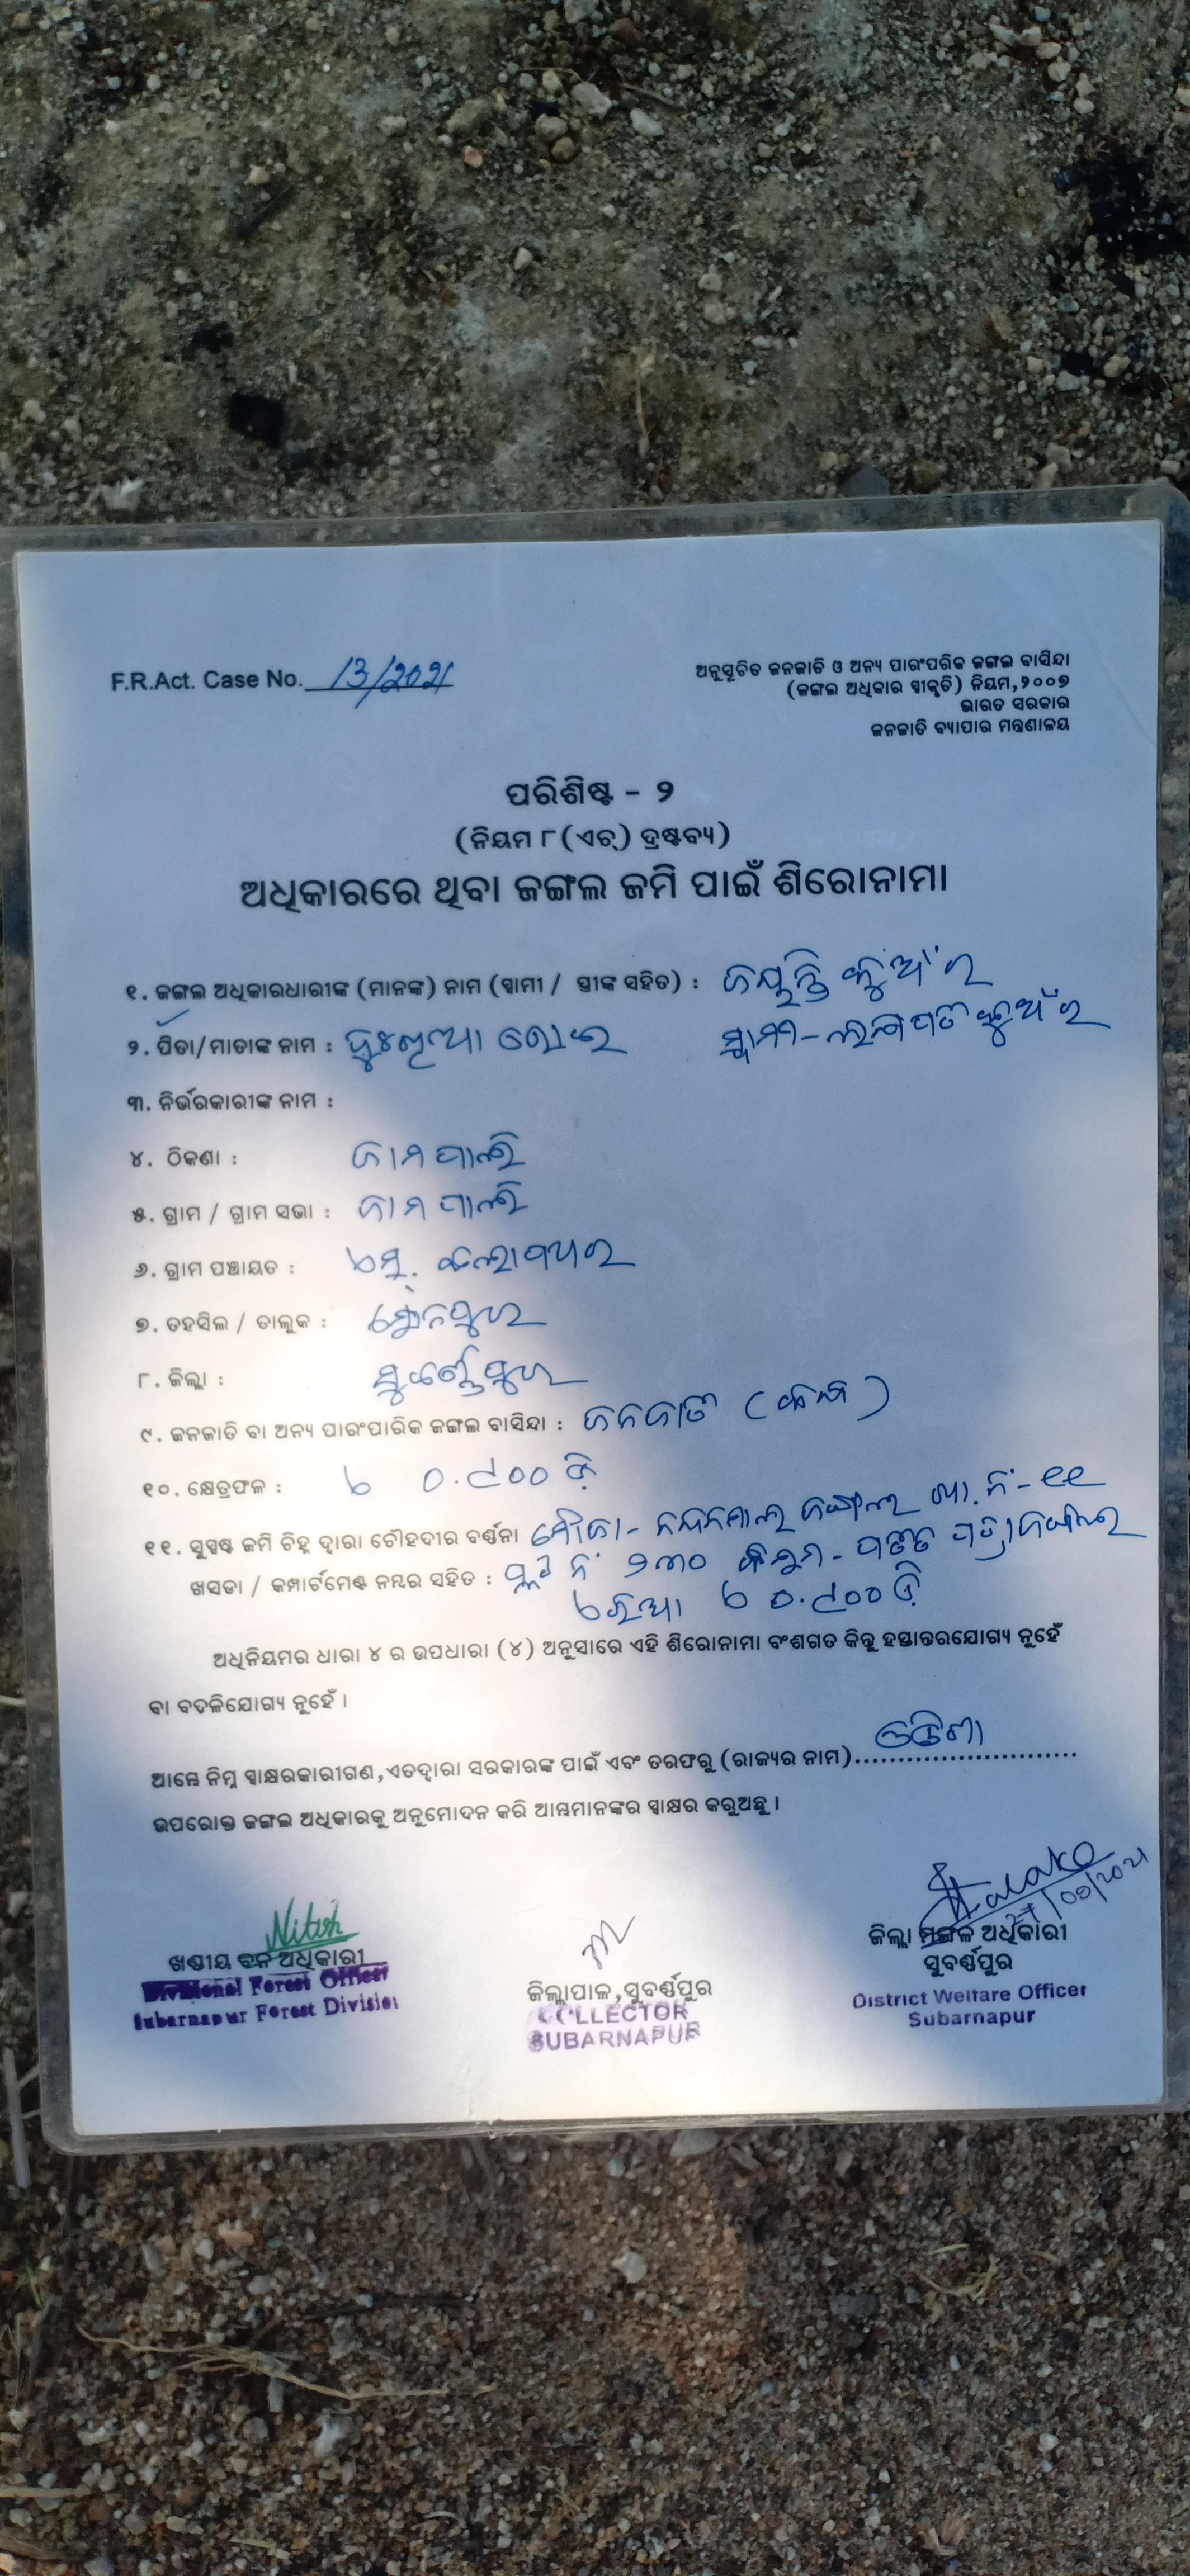 F.R.Act. Case No. 13/2021
ଅନୁସୂଚିତ ଜନଜାତି ଓ ଅନ୍ୟ ପାରଂପରିକ ଜଙ୍ଗଲ ବାସିନ୍ଦା
(ଜଙ୍ଗଲ ଅଧିକାର ସ୍ୱୀକୃତି) ନିୟମ,୨୦୦୭
ଭାରତ ସରକାର
ଜନଜାତି ବ୍ୟାପାର ମନ୍ତ୍ରଣାଳୟ
ପରିଶିଷ୍ଟ - ୨
(ନିୟମ ୮(ଏଚ୍) ଦ୍ରଷ୍ଟବ୍ୟ)
ଅଧିକାରରେ ଥିବା ଜଙ୍ଗଲ ଜମି ପାଇଁ ଶିରୋନାମା
୧. ଜଙ୍ଗଲ ଅଧିକାରଧାରୀଙ୍କ (ମାନଙ୍କ) ନାମ (ସ୍ୱାମୀ / ସ୍ତ୍ରୀଙ୍କ ସହିତ) : ଜୟନ୍ତି କୁଅଁର
୨. ପିତା/ମାତାଙ୍କ ନାମ : ଦୁଃଖିଆ ସ୍ୱାମୀ- କୁଅଁର
୩. ନିର୍ଭରକାରୀଙ୍କ ନାମ :
୪. ଠିକଣା : ଜାମପାଲି
୫. ଗ୍ରାମ / ଗ୍ରାମ ସଭା : ଜାମପାଲି
୬. ଗ୍ରାମ ପଞ୍ଚାୟତ :
୭. ତହସିଲ / ତାଲୁକ : ସୋନପୁର
୮. ଜିଲ୍ଲା : ସୁବର୍ଣ୍ଣପୁର
୯. ଜନଜାତି ବା ଅନ୍ୟ ପାରଂପାରିକ ଜଙ୍ଗଲ ବାସିନ୍ଦା : ଜନଜାତି (କନ୍ଧ)
୧୦. କ୍ଷେତ୍ରଫଳ : ୦.୯୦୦ ଡି
୧୧. ସୁସ୍ପଷ୍ଟ ଜମି ଚିହ୍ନ ଦ୍ୱାରା ଚୌହଦୀର ବର୍ଣ୍ଣନା ମୌଜା- ଜଙ୍ଗଲ ଖା.ନଂ- ୧୧
ଖସଡା / କମ୍ପାର୍ଟମେଣ୍ଟ ନମ୍ବର ସହିତ : ପ୍ଲଟ ନଂ ୨୩୦ କିସମ-
୦.୯୦୦ ଡି
ଅଧିନିୟମର ଧାରା ୪ ର ଉପଧାରା (୪) ଅନୁସାରେ ଏହି ଶିରୋନାମା ବଂଶଗତ କିନ୍ତୁ ହସ୍ତାନ୍ତରଯୋଗ୍ୟ ନୁହେଁ
ବା ବଦଳିଯୋଗ୍ୟ ନୁହେଁ ।
ଆମ୍ଭେ ନିମ୍ନ ସ୍ୱାକ୍ଷରକାରୀଗଣ,ଏତଦ୍ୱାରା ସରକାରଙ୍କ ପାଇଁ ଏବଂ ତରଫରୁ (ରାଜ୍ୟର ନାମ).......ଓଡିଶା.......
ଉପରୋକ୍ତ ଜଙ୍ଗଲ ଅଧିକାରକୁ ଅନୁମୋଦନ କରି ଆମ୍ଭମାନଙ୍କର ସ୍ୱାକ୍ଷର କରୁଅଛୁ ।
Nitish
ଖଣ୍ଡୀୟ ବନ ଅଧିକାରୀ
Divisional Forest Officer
Subarnapur Forest Division
ଜିଲ୍ଲାପାଳ,ସୁବର୍ଣ୍ଣପୁର
COLLECTOR
SUBARNAPUR
ଜିଲ୍ଲା ମଙ୍ଗଳ ଅଧିକାରୀ
ସୁବର୍ଣ୍ଣପୁର
District Welfare Officer
Subarnapur